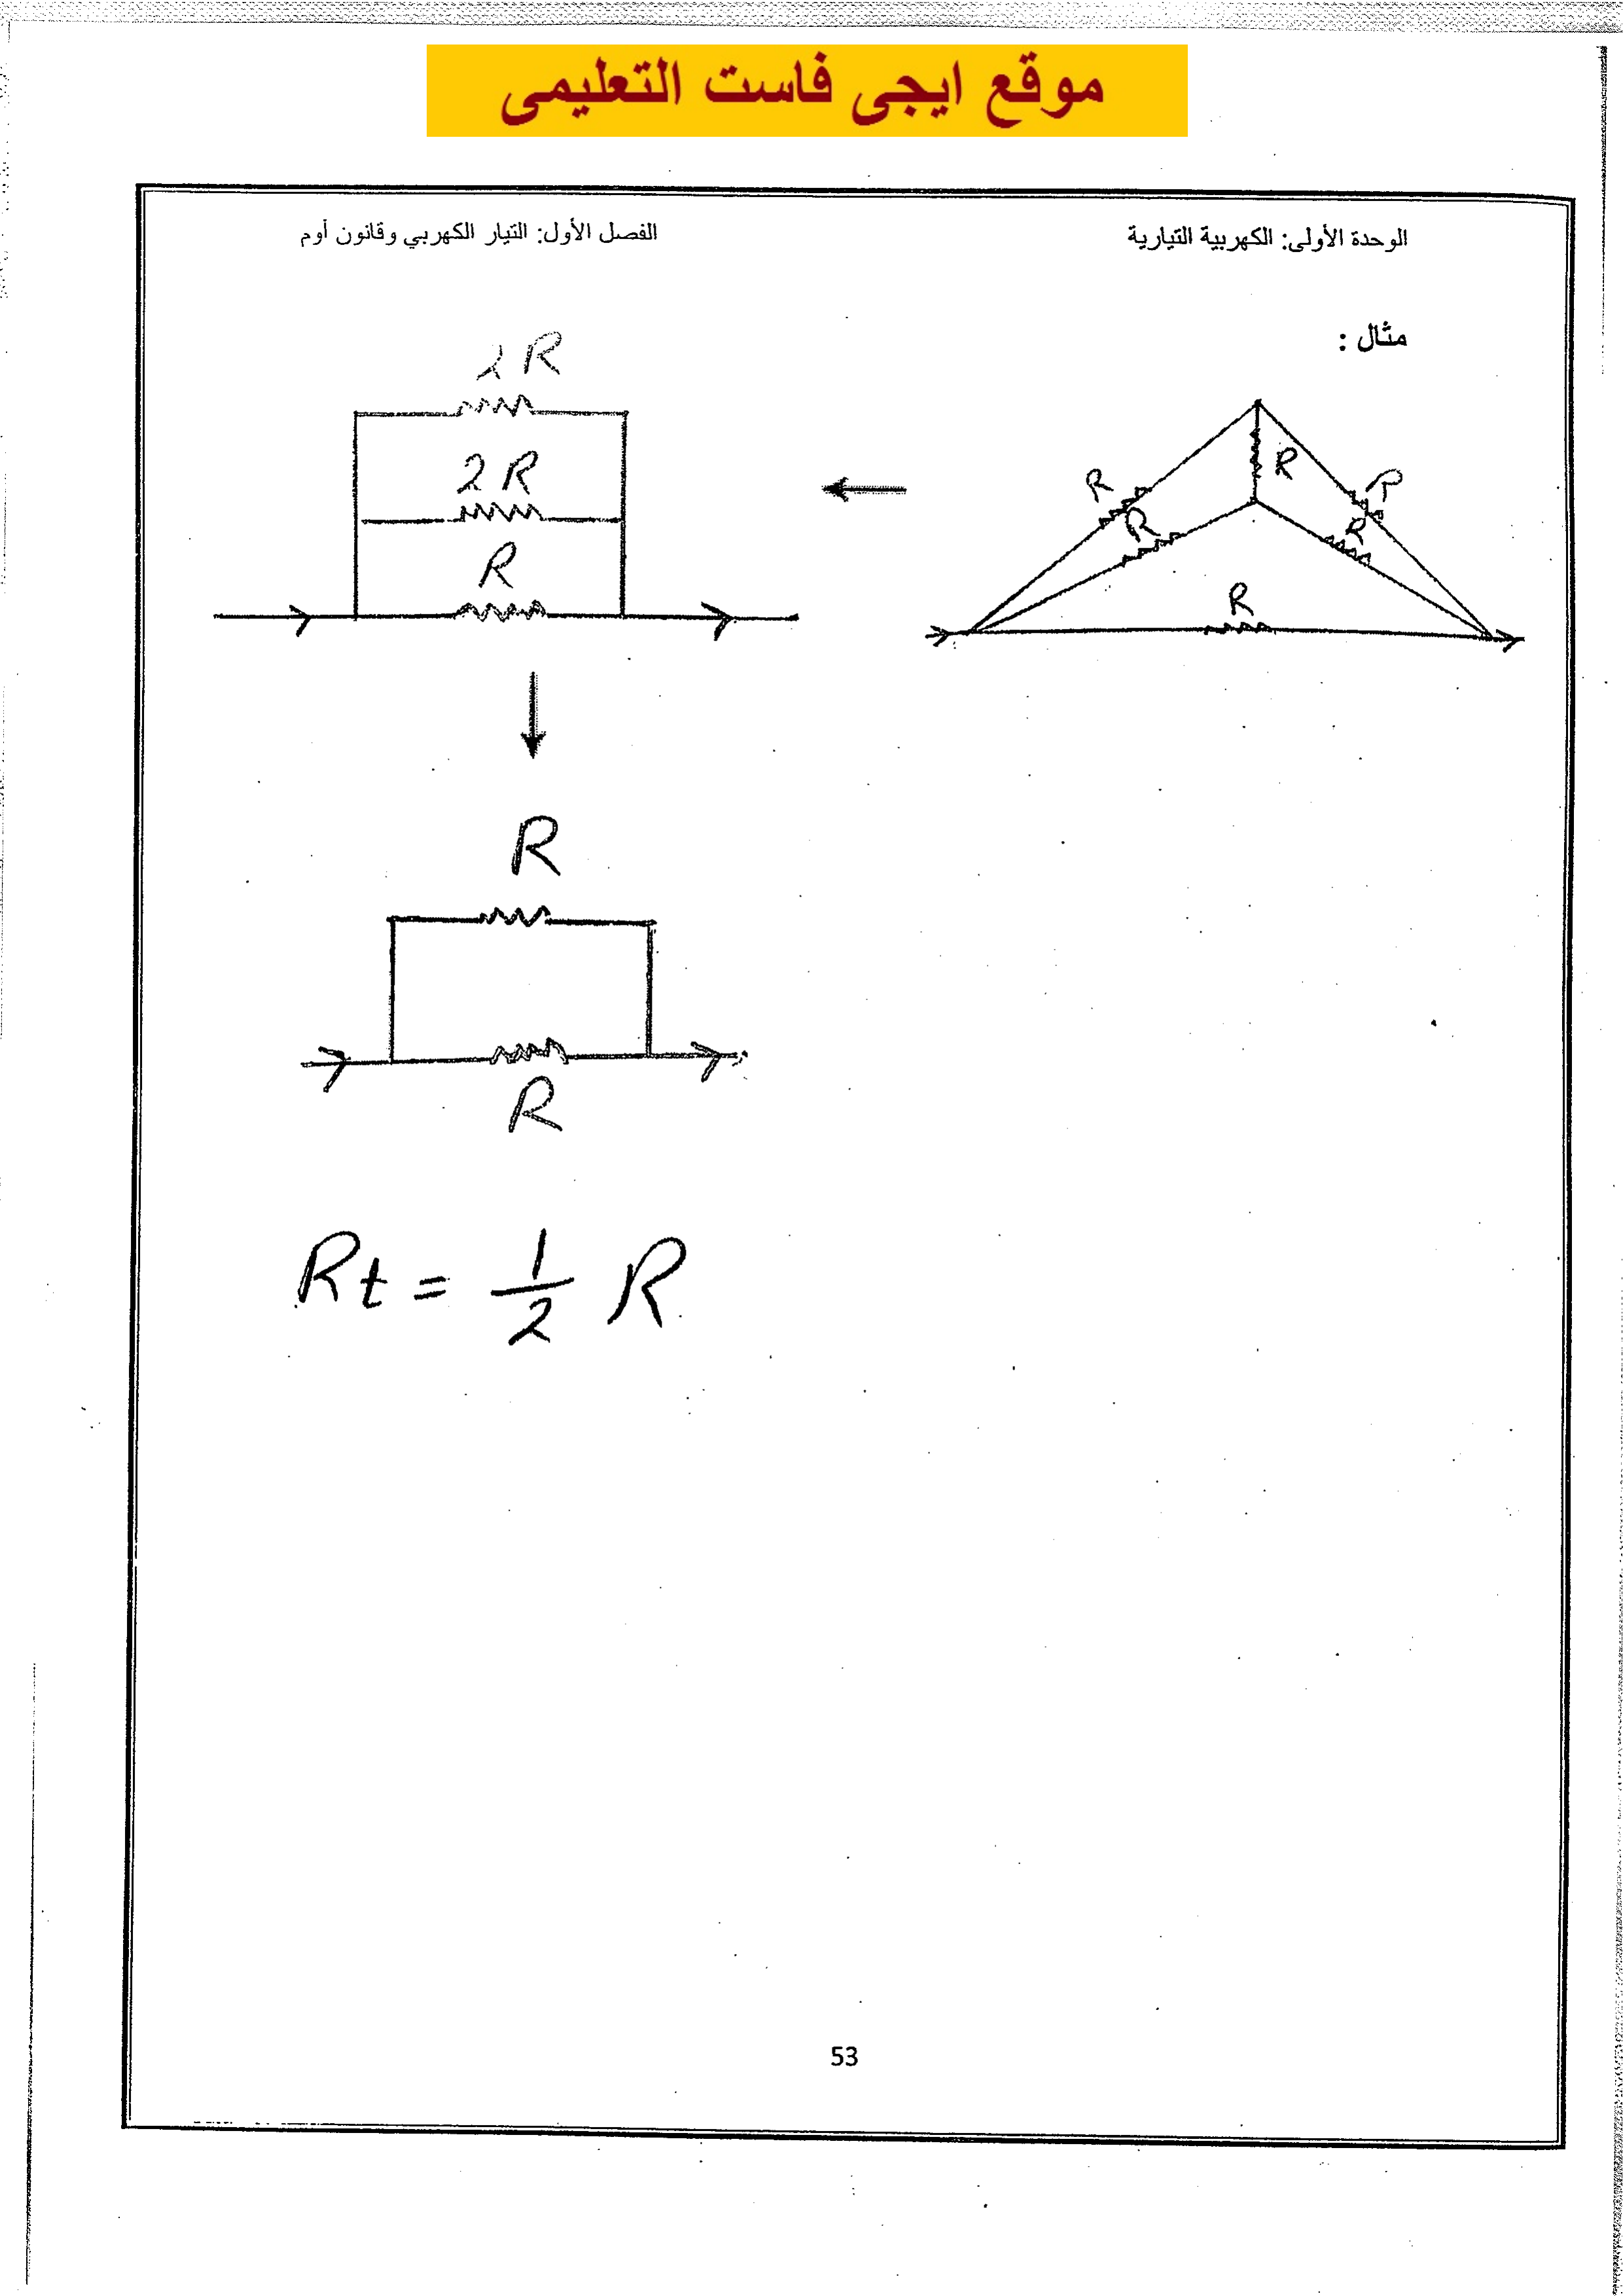 موقع ايجى فاست التعليمى
الوحدة الأولى: الكهربية التيارية
الفصل الأول: التيار الكهربي وقانون أوم
مثال :
R
R
R
R
R
R
2R
2R
R
R
R
Rt = 1/2 R
53